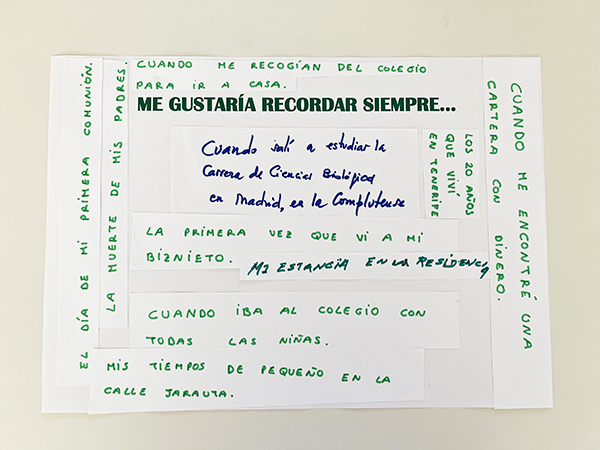 CUANDO ME RECOGÍAN DEL COLEGIO
PARA IR A CASA.
ME GUSTARÍA RECORDAR SIEMPRE...
EL DÍA DE MI PRIMERA COMUNIÓN.
LA MUERTE DE MIS PADRES.
Cuando salí a estudiar la
Carrera de Ciencias Biológicas
en Madrid, en la Complutense
LOS 20 AÑOS
QUE VIVÍ
EN TENERIFE
CUANDO ME ENCONTRÉ UNA
CARTERA CON DINERO.
LA PRIMERA VEZ QUE VI A MI
BIZNIETO.
MI ESTANCIA EN LA RESIDENCIA
CUANDO IBA AL COLEGIO CON
TODAS LAS NIÑAS.
MIS TIEMPOS DE PEQUEÑO EN LA
CALLE JARAUTA.